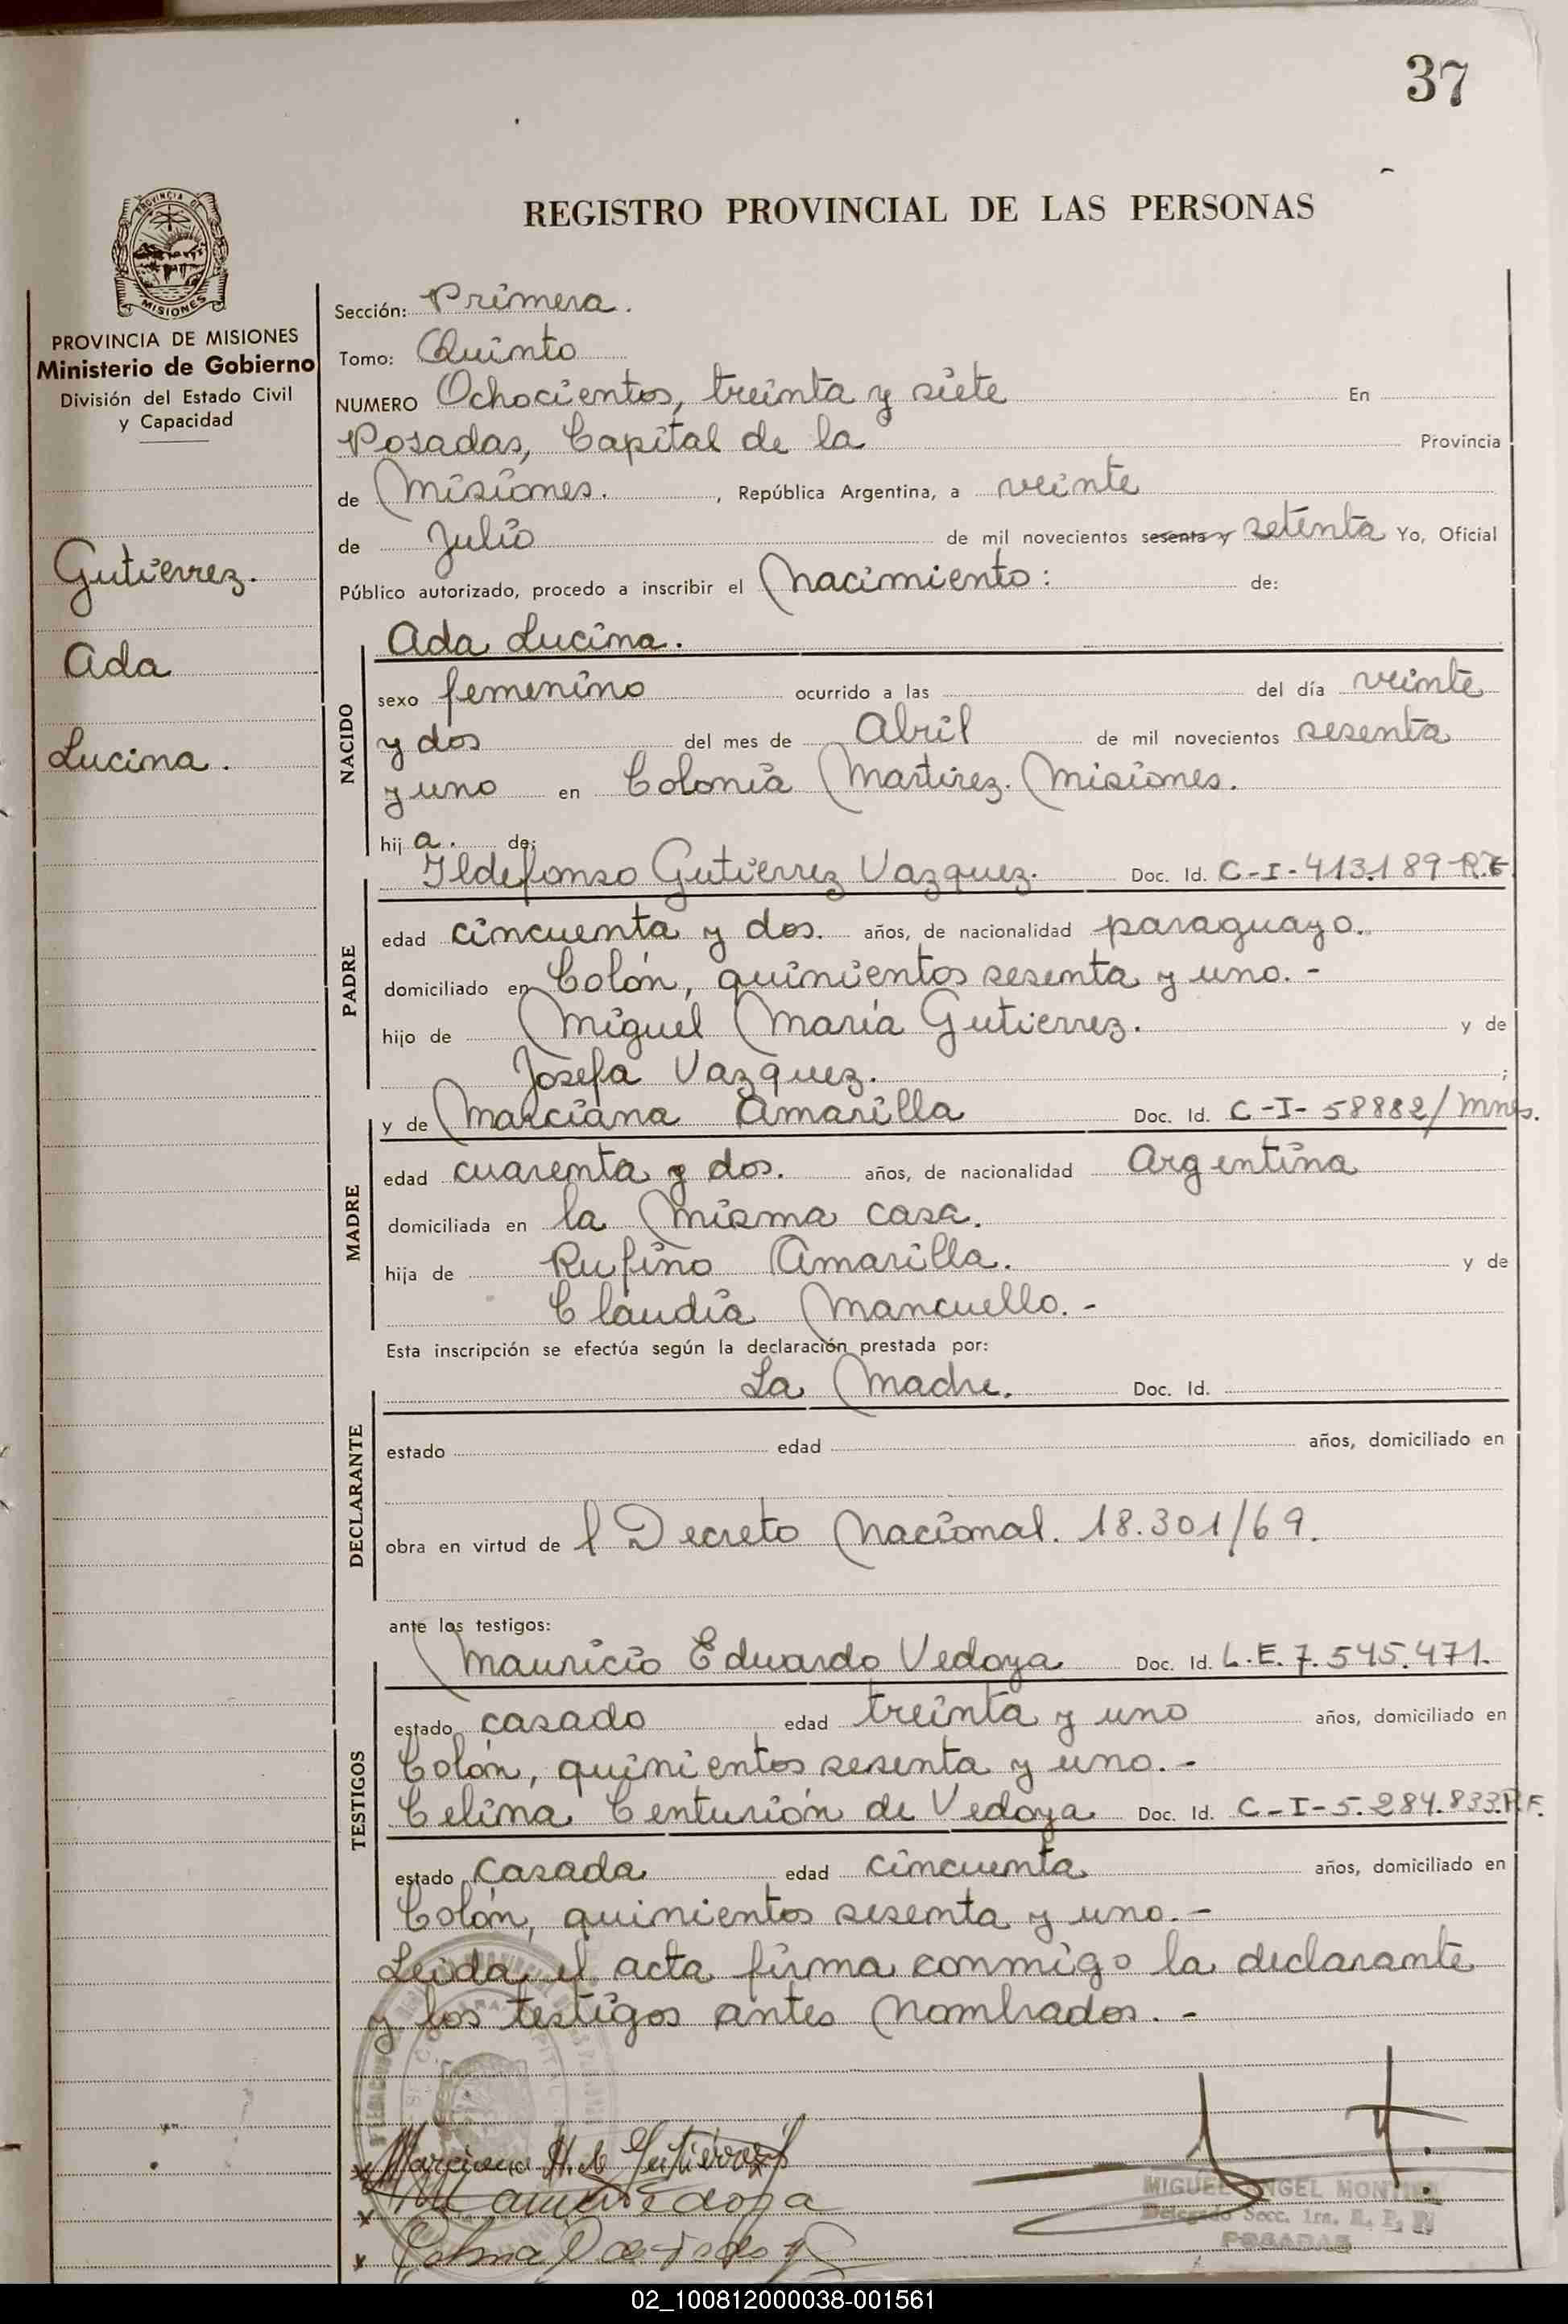 37
REGISTRO PROVINCIAL DE LAS PERSONAS
PROVINCIA DE MISIONES
Ministerio de Gobierno
División del Estado Civil
y Capacidad
Gutiérrez.
Ada
Lucina.
Sección: Primera.
Tomo: Quinto
NUMERO Ochocientos, treinta y siete En
Posadas, Capital de la Provincia
de Misiones. , República Argentina, a veinte
de Julio de mil novecientos sesenta y setenta Yo, Oficial
Público autorizado, procedo a inscribir el Nacimiento: de:
NACIDO
Ada Lucina.
sexo femenino ocurrido a las del día veinte
y dos del mes de Abril de mil novecientos sesenta
y uno en Colonia Martirez. Misiones.
hij a. de:
PADRE
Ildefonso Gutierrez Vazquez. Doc. Id. C-I-413.189-R.F.
edad cincuenta y dos. años, de nacionalidad paraguayo.
domiciliado en Colón, quinientos sesenta y uno.-
hijo de Miguel María Gutierrez. y de
Josefa Vazquez. ;
MADRE
y de Marciana Amarilla Doc. Id. C-I-58882/Mnes.
edad cuarenta y dos. años, de nacionalidad Argentina
domiciliada en la misma casa.
hija de Rufino Amarilla. y de
Claudia Mancuello.-
Esta inscripción se efectúa según la declaración prestada por:
DECLARANTE
La Madre. Doc. Id.
estado edad años, domiciliado en
obra en virtud de l Decreto Nacional. 18.301/69.
ante los testigos:
TESTIGOS
Mauricio Eduardo Vedoya Doc. Id. L.E. 7.545.471.
estado casado edad treinta y uno años, domiciliado en
Colón, quinientos sesenta y uno.-
Celina Centurión de Vedoya Doc. Id. C-I-5.284.833.P.F.
estado casada edad cincuenta años, domiciliado en
Colón, quinientos sesenta y uno.-
Leida el acta firma conmigo la declarante
y los testigos antes nombrados.-
Marciana H. de Gutiérrez
MIGUEL ANGEL
Delegado Secc. 1ra. R. P. P.
POSADAS
02_100812000038-001561